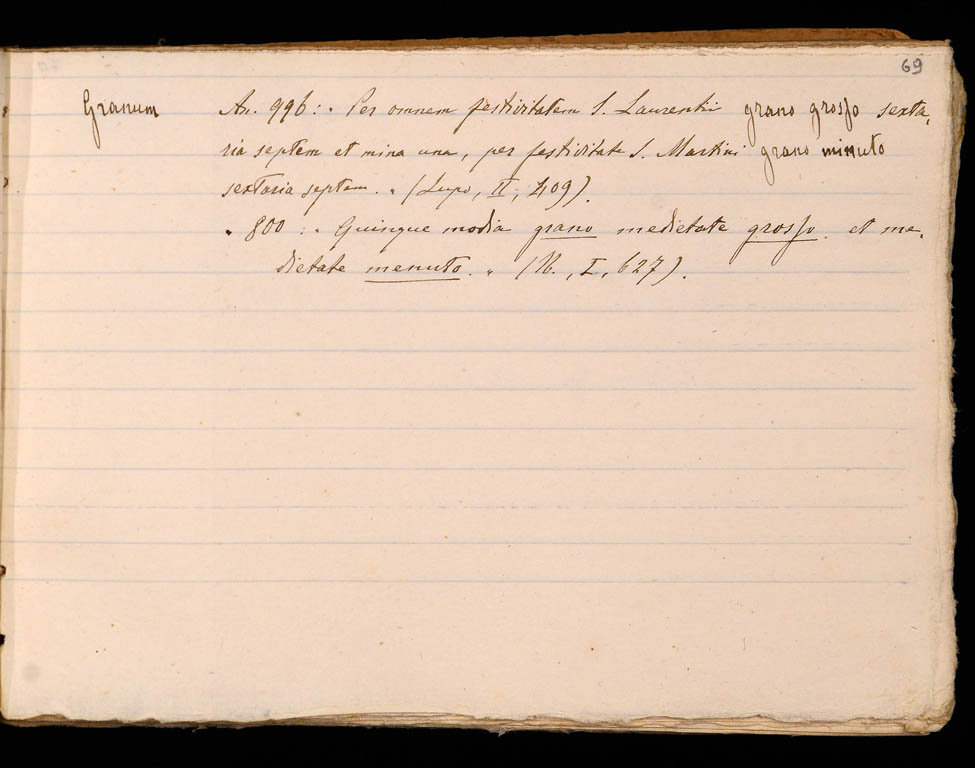 69
Granum An. 996: " Per omnem festivitatem S. Laurentii grano grosso sexta,
ria septem et mina una, per festivitate S. Martini grano minuto
sextaria septem. " (Lupo, II, 409).
" 800 : " Quinque modia grano medietate grosso. et me,
dietate menuto. " (It., I, 627).